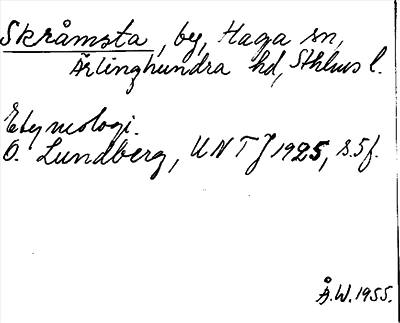 Skråmsta, by, Haga sn,
Ärlinghundra hd, Sthlms l.
Etymologi.
O. Lundberg, UNT J 1925, s. 5 f.
Å.W. 1955.